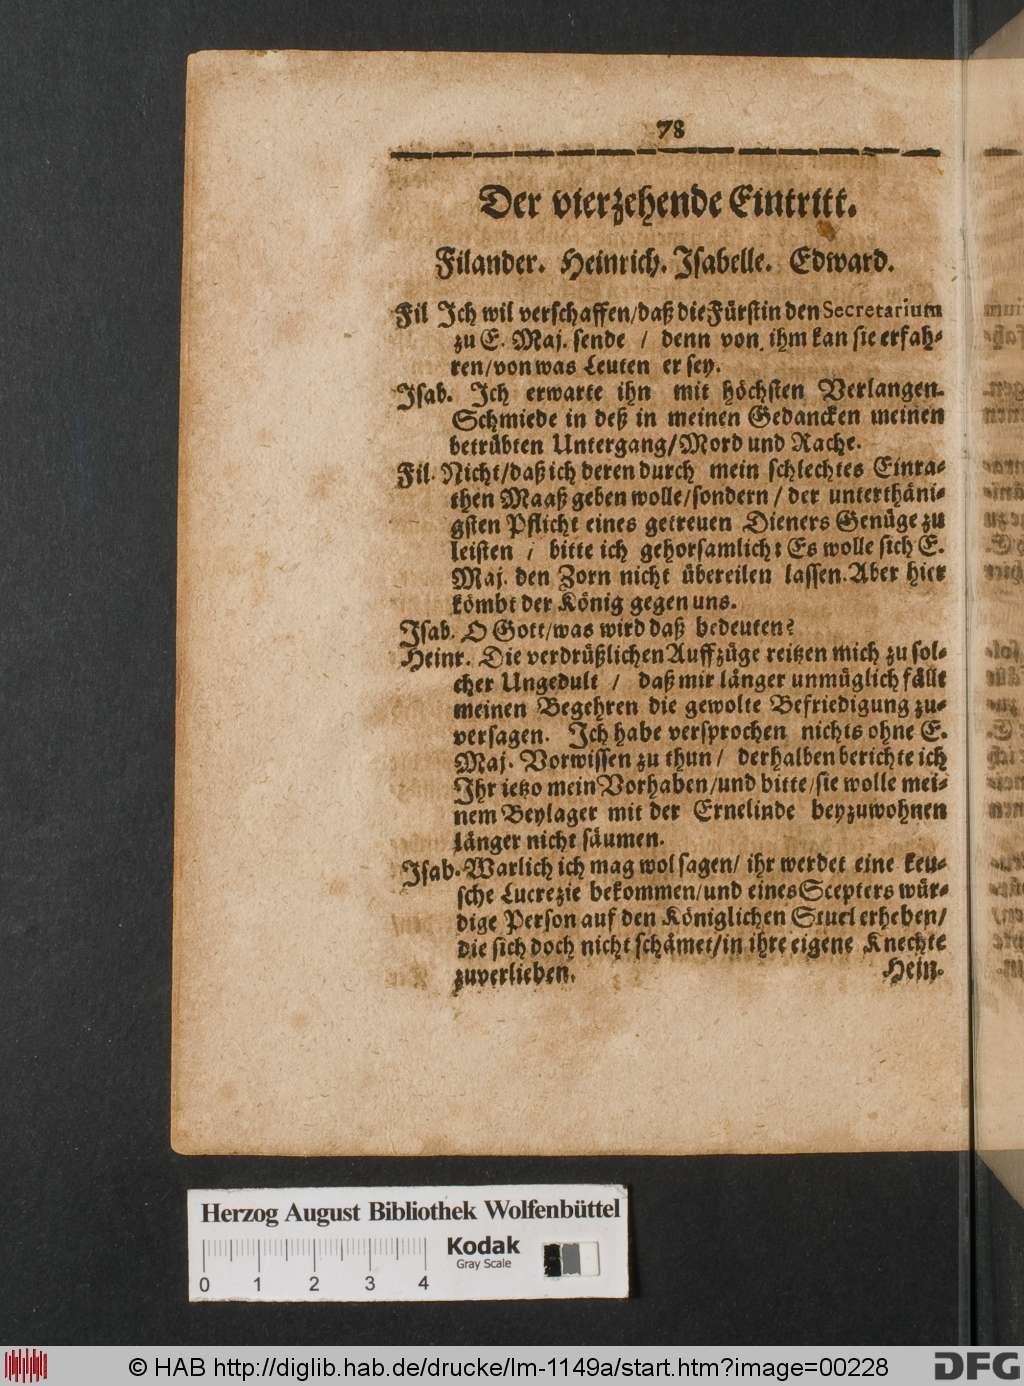 78
Der vierzehende Eintritt.
Filander. Heinrich. Isabelle. Edward.
Fil Ich wil verschaffen/daß die Fürstin den Secretarium
zu E. Maj. sende / denn von ihm kan sie erfah-
ren/von was Leuten er sey.
Isab. Ich erwarte ihn mit höchsten Verlangen.
Schmiede in deß in meinen Gedancken meinen
betrübten Untergang/Mord und Rache.
Fil. Nicht/daß ich deren durch mein schlechtes Einra-
then Maaß geben wolle/sondern / der unterthäni-
gsten Pflicht eines getreuen Dieners Genüge zu
leisten / bitte ich gehorsamlich: Es wolle sich E.
Maj. den Zorn nicht übereilen lassen. Aber hier
kömbt der König gegen uns.
Isab. O Gott/was wird daß bedeuten?
Heinr. Die verdrüßlichen Auffzüge reitzen mich zu sol-
cher Ungedult / daß mir länger unmüglich fällt
meinen Begehren die gewolte Befriedigung zu-
versagen. Ich habe versprochen nichts ohne E.
Maj. Vorwissen zu thun / derhalben berichte ich
Ihr ietzo mein Vorhaben/und bitte/sie wolle mei-
nem Beylager mit der Ernelinde beyzuwohnen
länger nicht säumen.
Isab. Warlich ich mag wol sagen/ ihr werdet eine keu-
sche Lucrezie bekommen/und eines Scepters wür-
dige Person auf den Königlichen Stuel erheben/
die sich doch nicht schämet/in ihre eigene Knechte
zuverlieben. Hein.
Herzog August Bibliothek Wolfenbüttel
Kodak
Gray Scale
0 1 2 3 4
© HAB http://diglib.hab.de/drucke/lm-1149a/start.htm?image=00228
DFG